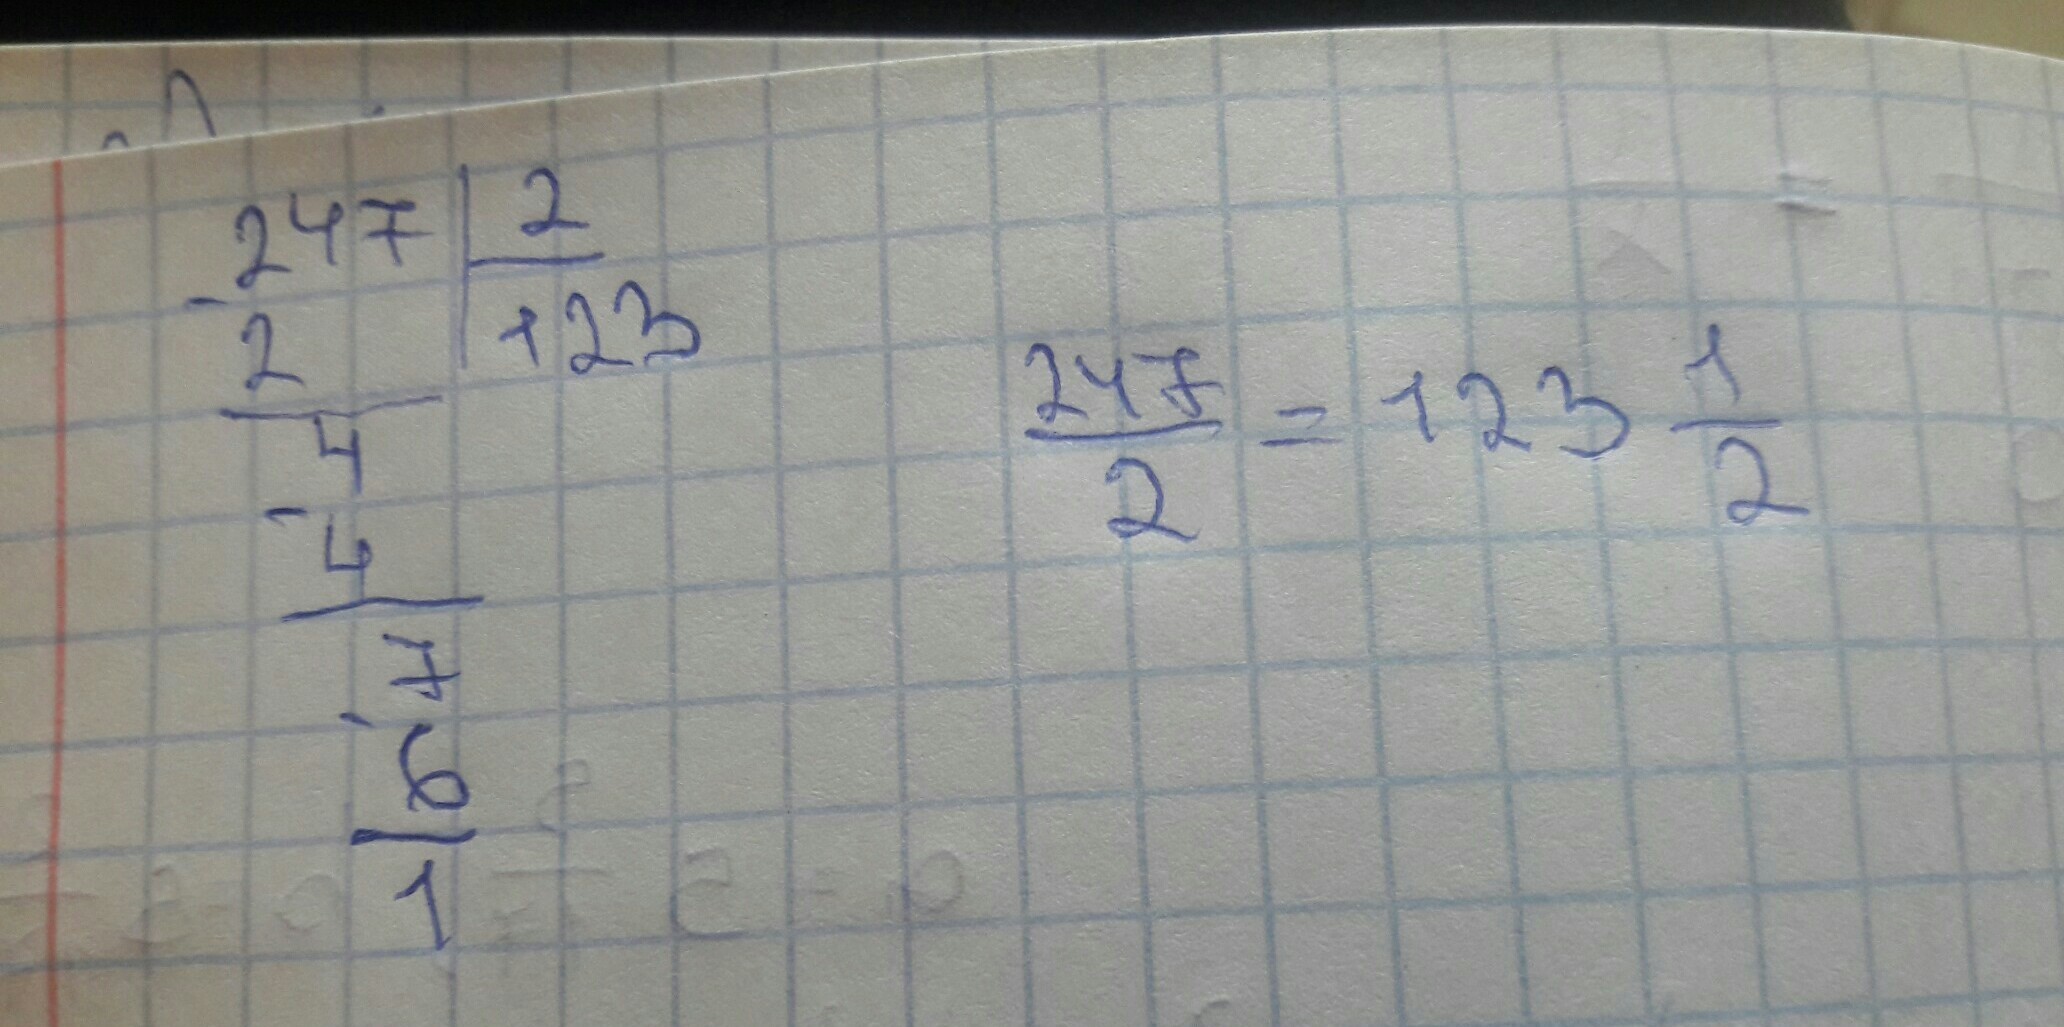 247 | 2
- 2 | 123
4
- 4
7
- 6
1
247/2 = 123 1/2